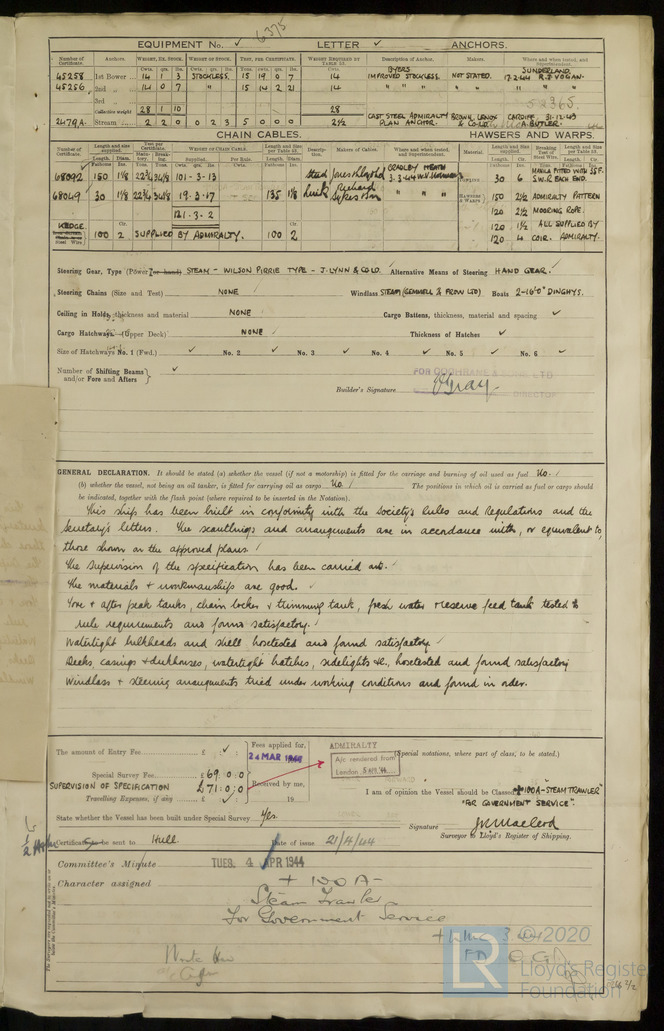 6375
EQUIPMENT No. ✓ LETTER ✓ ANCHORS.
Number of Certificate. Anchors. WEIGHT, EX. STOCK. WEIGHT OF STOCK. TEST, PER CERTIFICATE. WEIGHT REQUIRED BY TABLE 53. Description of Anchor. Makers of Anchors. Where and when tested, and Superintendent.
45258 1st Bower 14 1 3 STOCKLESS. 15 19 0 7 14 BYERS IMPROVED STOCKLESS. NOT STATED. SUNDERLAND. 17.2.44 R.J. VOGAN.
45256 2nd " 14 0 7 " 15 14 2 21 14 " " " " "
3rd "
Collective weight 28 1 10 28 52365.
2479A. Stream 2 2 0 0 2 3 5 0 0 0 2½ CAST STEEL ADMIRALTY PLAN ANCHOR. BROWN, LENOX & CO. LD. CARDIFF 31.12.43 A. BUTLER.
CHAIN CABLES. HAWSERS AND WARPS.
68092 150 1⅛ 22¾ 34⅛ 101-3-13 Stud BRADLEY HEATH 3.3.44
68049 30 1⅛ 22¾ 34⅛ 19-3-17 135 1⅛ link Richard Sykes & Son " " "
121-3-2
KEDGE 100 2 SUPPLIED BY ADMIRALTY. 100 2
30 6 MANILA FITTED WITH 35F. S.W.R EACH END.
150 2½ ADMIRALTY PATTERN
120 2½ MOORING ROPE.
120 1½ ALL SUPPLIED BY
120 4 COIR. ADMIRALTY.
Steering Gear, Type (Power or hand) STEAM - WILSON PIRRIE TYPE - J. LYNN & CO LD. Alternative Means of Steering HAND GEAR.
Steering Chains (Size and Test) NONE Windlass STEAM (GEMMELL & FROW LTD) Boats 2-16'0" DINGHYS.
Ceiling in Holds, thickness and material NONE Cargo Battens, thickness, material and spacing ✓
Cargo Hatchways (Upper Deck) NONE Thickness of Hatches ✓
Size of Hatchways No. 1 (Fwd.) ✓ No. 2 ✓ No. 3 ✓ No. 4 ✓ No. 5 ✓ No. 6 ✓
Number of Shifting Beams and/or Fore and Afters } ✓
FOR COCHRANE & SONS LTD
Builder's Signature Gray
DIRECTOR
GENERAL DECLARATION. It should be stated (a) whether the vessel (if not a motorship) is fitted for the carriage and burning of oil used as fuel No.
(b) whether the vessel, not being an oil tanker, is fitted for carrying oil as cargo No The positions in which oil is carried as fuel or cargo should
be indicated, together with the flash point (where required to be inserted in the Notation).
This ship has been built in conformity with the Society's Rules and Regulations and the
Secretary's letters. The scantlings and arrangements are in accordance with, or equivalent to,
those shown on the approved plans
The Supervision of the specification has been carried out.
The materials & workmanship are good.
Fore & after peak tanks, chain locker & trimming tank, fresh water & reserve feed tank tested to
rule requirements and found satisfactory.
Watertight bulkheads and shell hosetested and found satisfactory
Decks, casings & deckhouses, watertight hatches, sidelights &c., hosetested and found satisfactory
Windlass & steering arrangements tried under working conditions and found in order.
The amount of Entry Fee £ ✓
Special Survey Fee £69:0:0
SUPERVISION OF SPECIFICATION £71:0:0
Travelling Expenses, if any £ :
Fees applied for, 24 MAR 1944
Received by me, 19
ADMIRALTY
A/c rendered from London 5 APR '44
(Special notations, where part of class, to be stated.)
I am of opinion the Vessel should be Classed ✠100A-"STEAM TRAWLER"
"FOR GOVERNMENT SERVICE".
State whether the Vessel has been built under Special Survey Yes.
Signature
Surveyor to Lloyd's Register of Shipping.
Certificate to be sent to Hull Date of issue 21/4/44
Committee's Minute TUES. 4 APR 1944
Character assigned + 100 A-
Steam Trawler
For Government Service
©2020
LR Lloyd's Register Foundation